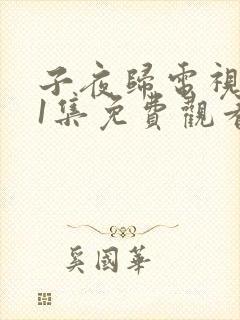 子夜歸電視
1集免費觀看
奚國華